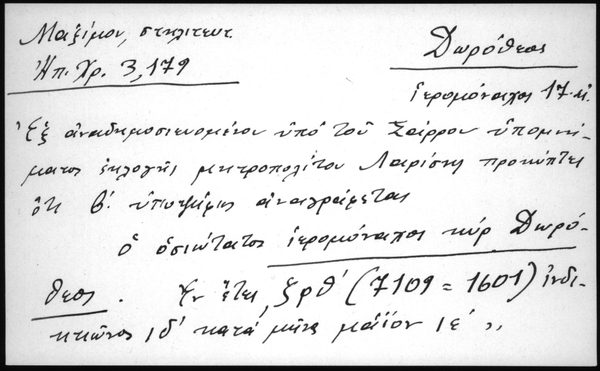 Μαξίμου, στηλιτευτ.
Ἠπ. Χρ. 3, 179
Δωρόθεος
ἱερομόναχος 17. αἰ.
Ἐξ ἀναδημοσιευομένου ὑπὸ τοῦ Σάρρου ὑπομνή-
ματος ἐκλογῆς μητροπολίτου Λαρίσης προκύπτει
ὅτι β. ὑποψήφιος ἀναγράφεται
ὁ ὁσιώτατος ἱερομόναχος κύρ Δωρό-
θεος. Ἐν ἔτει ζρθ' (7109 = 1601) ἰνδι-
κτιῶνος ιδ' κατὰ μῆνα μάϊον ιε' "